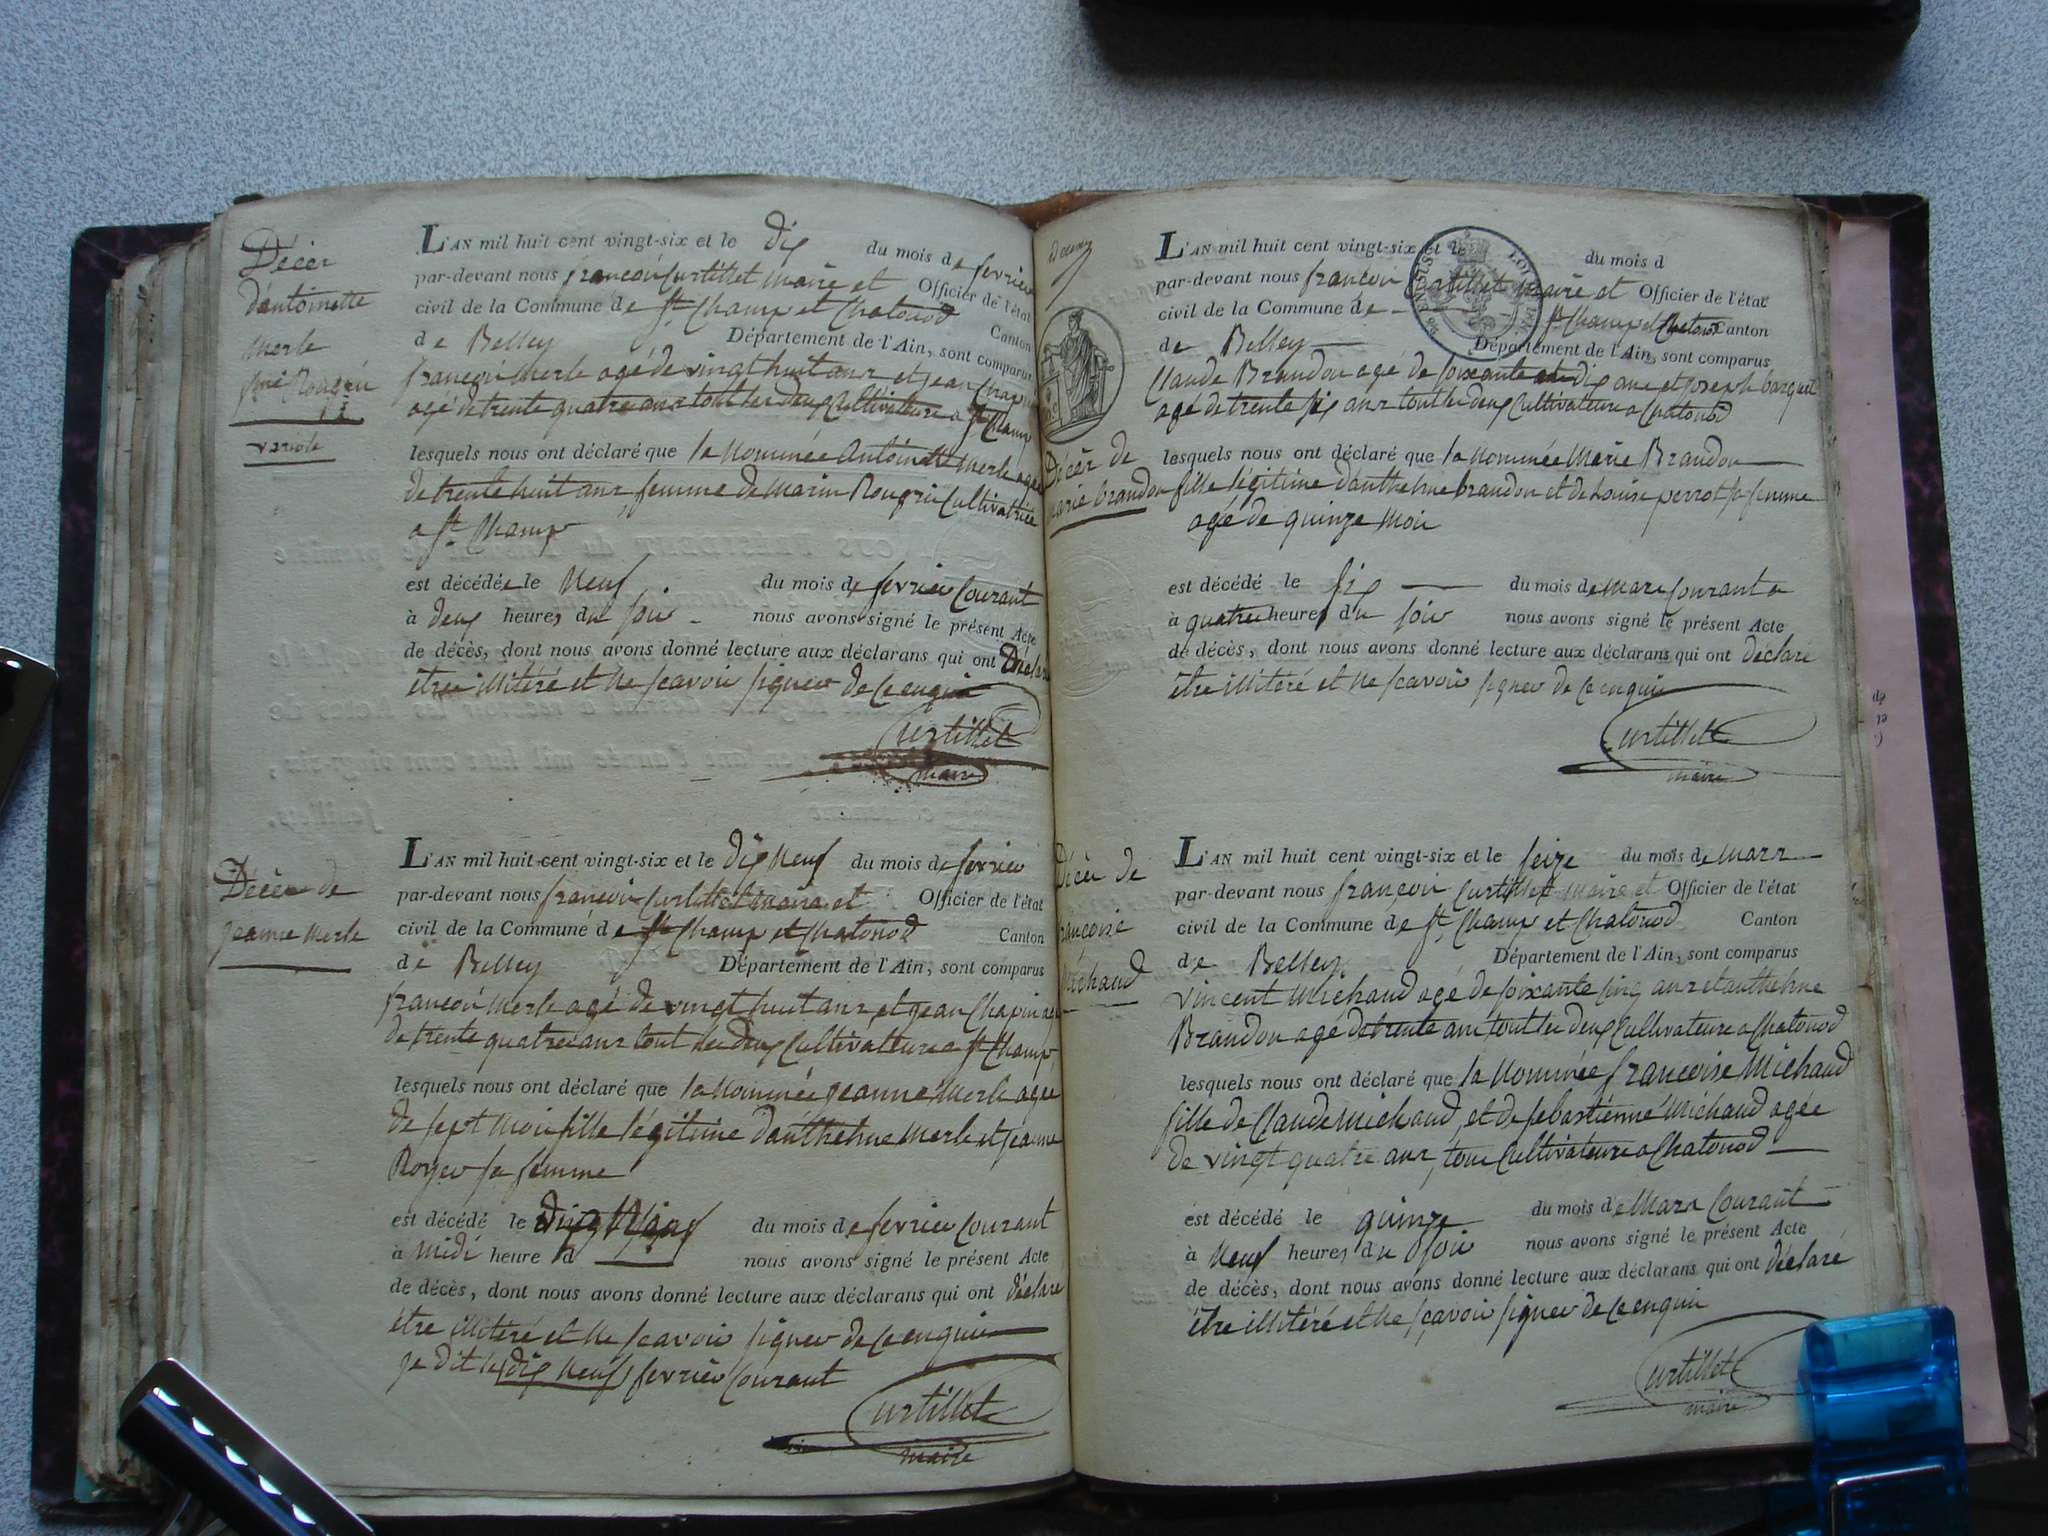 Décès
d'antoinette
Merle
fme Rougriu
variole
L'AN mil huit cent vingt-six et le dix du mois de fevrier
par-devant nous françois Curtillet maire et Officier de l'état
civil de la Commune de St Champ et Chatonod Canton
de Belley Département de l'Ain, sont comparus
françois Merle agé de vingt huit ans et jean Chapin
agé de trente quatre ans tout les deux Cultivateurs a St Champ
lesquels nous ont déclaré que la Nommée Antoinette Merle agée
de trente huit ans femme de Marin Rougriu Cultivatrice
a St Champ
est décédée le Neuf du mois de fevrier Courant
à deux heures du soir nous avons signé le présent Acte
de décès, dont nous avons donné lecture aux déclarans qui ont Déclaré
être illitéré et ne scavoir signer de ce enquis
Curtillet
maire
Décès de
jeanne Merle
L'AN mil huit cent vingt-six et le dix Neuf du mois de fevrier
par-devant nous françois Curtillet maire et Officier de l'état
civil de la Commune de St Champ et Chatonod Canton
de Belley Département de l'Ain, sont comparus
françois Merle agé de vingt huit ans et jean Chapin agé
de trente quatre ans tout les deux Cultivateurs a St Champ
lesquels nous ont déclaré que la Nommée jeanne Merle agée
de sept Mois fille légitime d'anthelme Merle et jeanne
Royer sa femme
est décédé le du mois de fevrier Courant
à Midi heure d nous avons signé le présent Acte
de décès, dont nous avons donné lecture aux déclarans qui ont déclaré
être illitéré et ne scavoir signer de ce enquis
je dit le dix Neuf fevrier Courant
Curtillet
maire
L'AN mil huit cent vingt-six et le du mois d
par-devant nous françois Curtillet maire et Officier de l'état
civil de la Commune de St Champ et Chatonod Canton
de Belley Département de l'Ain, sont comparus
Claude Brandon agé de soixante dix ans et joseph barquet
agé de trente six ans tout les deux Cultivateurs a Chatonod
Décès de
marie brandon
lesquels nous ont déclaré que la Nommée Marie Brandon
fille légitime d'anthelme brandon et de Louise perrot sa femme
agé de quinze Mois
est décédé le six du mois de Mars Courant a
à quatre heures du soir nous avons signé le présent Acte
de décès, dont nous avons donné lecture aux déclarans qui ont déclaré
être illitéré et ne scavoir signer de ce enquis
Curtillet
maire
Décès de
françoise
Michaud
L'AN mil huit cent vingt-six et le seize du mois de Mars
par-devant nous françois Curtillet maire et Officier de l'état
civil de la Commune de St Champ et Chatonod Canton
de Belley Département de l'Ain, sont comparus
Vincent Michaud agé de soixante cinq ans et anthelme
Brandon agé de trente ans tout les deux Cultivateurs a Chatonod
lesquels nous ont déclaré que la Nommée françoise Michaud
fille de Claude Michaud et de sebastienne Michaud agée
de vingt quatre ans, tous Cultivateurs a Chatonod
est décédé le quinze du mois de Mars Courant
à Neuf heures du soir nous avons signé le présent Acte
de décès, dont nous avons donné lecture aux déclarans qui ont déclaré
être illitéré et ne scavoir signer de ce enquis
Curtillet
maire